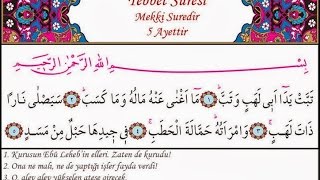 Tebbet Suresi
Mekki Suredir
5 Ayettir
بِسْمِ اللّٰهِ الرَّحْمٰنِ الرَّحِيمِ
تَبَّتْ يَدَٓا اَبٖي لَهَبٍ وَتَبَّ ﴿١﴾ مَٓا اَغْنٰى عَنْهُ مَالُهُ وَمَا كَسَبَ ﴿٢﴾ سَيَصْلٰى نَارًا
ذَاتَ لَهَبٍ ﴿٣﴾ وَامْرَاَتُهُ حَمَّالَةَ الْحَطَبِ ﴿٤﴾ فٖي جٖيدِهَا حَبْلٌ مِنْ مَسَدٍ ﴿٥﴾
1. Kurusun Ebû Leheb'in elleri. Zaten de kurudu!
2. Ona ne malı, ne de yaptığı işler fayda verdi!
3. O, alev alev yükselen ateşe girecek.